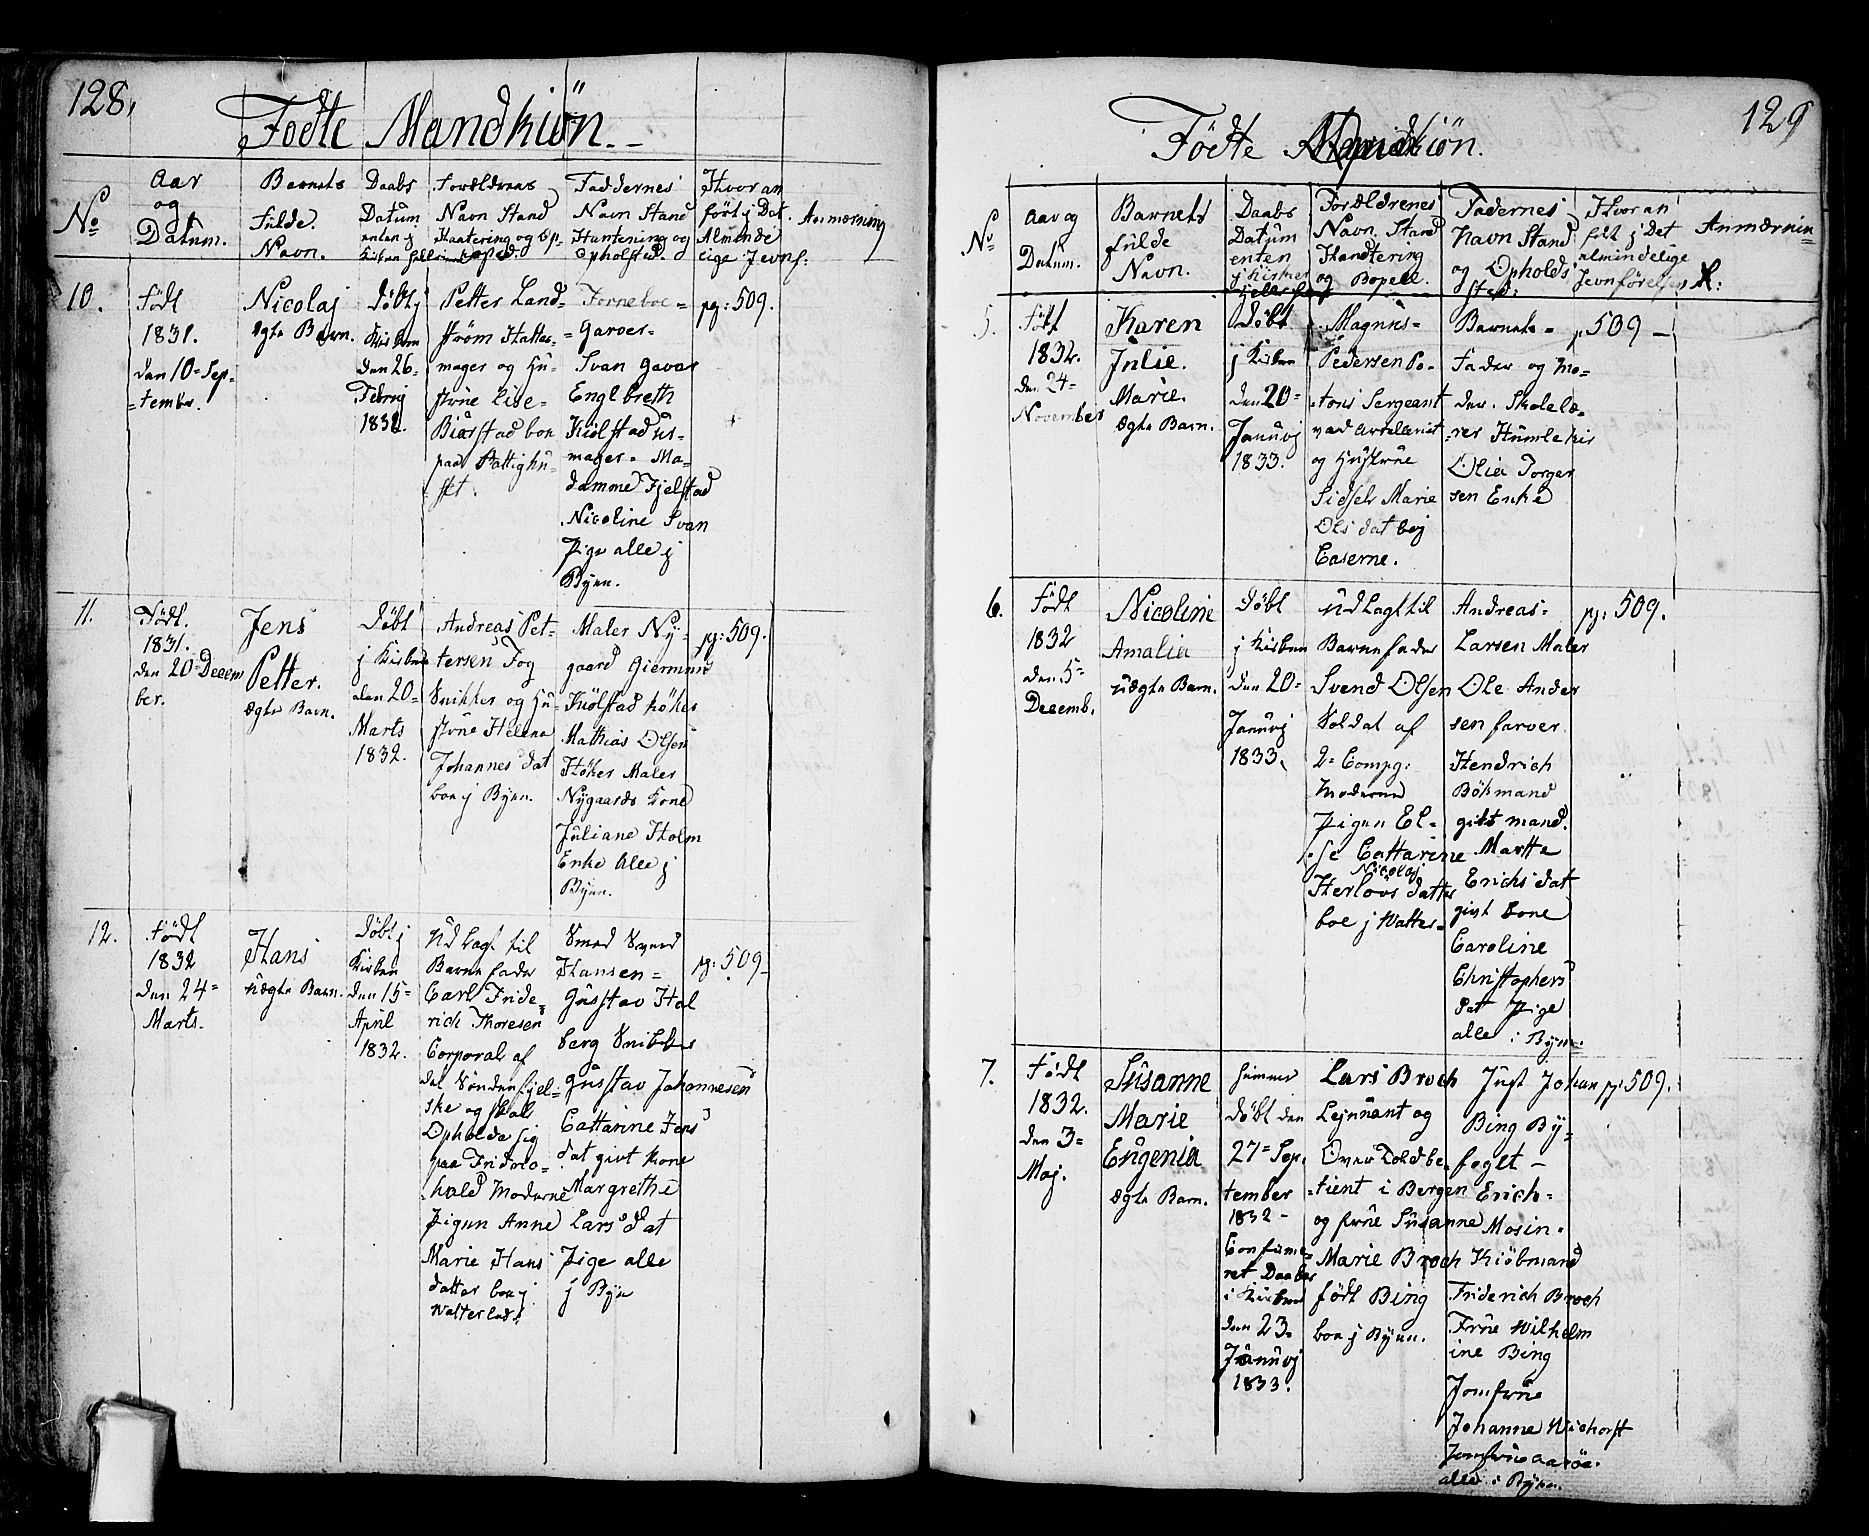 128.
Födte Mandkiön.
No
Aar
og
Datum.
Barnets
fulde
Navn.
Daabs
Datum
enten j
Kirken heller
Forældrenes
Navn Stand
Haantering og Op
Faddernes
Navn Stand
Hantering og
Opholsted.
Hvor an
fört j Det
Almende
lige Jevnf:
Anmerning
10.
Födt
1831.
den 10= Sep=
=tember.
Nicolaj
Ægte Barn.
Döbt j
Kirken
den 26=
Febrvj
1832.
Petter Land=
ström Hatte=
mager og Hu=
strue Lise=
Biærstad boe
paa Fattighu=
set.
Forneboe =
= Garver=
Svan Gaver
Englbreth
Kiölstad us=
mager= Ma=
damme Fjelstad
Nicoline Svan
Pige alle j
Byen.
pg: 509.
11.
Födt.
1831.
den 20= Decem
ber.
Jens
Petter.
Ægte Barn.
Döbt
j Kirken
den 20=
Marts
1832.
Andreas Pet=
tersen Fog
Snikker og Hu=
strue Helena
Johannes dat
boe j Byen.
Maler Ny=
gaard
Kiölstad Höker
Mathias Olsen
Höker Maler
Nygaards Kone
Juliane Holm
Enke Alle j
Byen.
pg: 509.
12.
Födt
1832
den 24=
Marts.
Hans
uægte Barn.
Döbt j
Kirken
den 15=
April
1832.
Udlagt til
Barnefader
Carl Fride=
rich Thoresen
Corporal af
det Söndenfjel=
ske og skal
Opholde sig
paa Fridric=
hald Moderne
Pigen Anne
Marie Hans
datter boe j
Watterland
Smed Svend
Hansen=
Gustav Hol
berg Snikker
Gustav Johannesen
Cattarine Jens
dat givt Kone
Margrethe
Lars dat
Pige alle
j Byen
pg: 509=
129
Födte Qvindkiön.
No
Aar og
Datum.
Barnets
fulde
Navn.
Daabs
Datum
enten
j Kirken
Forældrenes
Navn. Stand
Handtering
og Bopell.
Fadernes
Navn Stand
og Opholds
sted:
Hvor an
fört j Det
almindelige
Jevnförelses R:
Anmærnin=
5.
Födt
1832.
den 24=
November
Karen
Julie.
Marie.
Ægte Barn.
Döbt
j Kirken
den 20=
Januvj
1833.
Magnus=
Pedersen Po=
=tons Sergeant
ved Artileriet
og Hustrue
Sidsel Marie
Ols dat boj
Caserne.
Barnets=
Fader og Mo=
der. Skolelæ=
=rer Humlekir
Olia Torger
sen Enke
p 509 —
6.
Födt
1832
den 5=
Decemb.
Nicoline
Amalia
uægte Barn.
Döbt
j Kirken
den 20=
Januvj
1833.
Udlagt til
Barnefader
Svend Olsen
Soldat af
2= Compg:
Moderne
Pigen El=
=se Cattarine
Nicolaj
Herlovs datter
boe j Watter=
Andreas=
Larsen Maler
Ole Ander
sen farver
Hendrich
Bökmand
givt mand.
Martte
Erichs dat
givt Kone
Caroline
Christophers
dat Pige
alle i Byen.
pg: 509.
7.
Födt
1832.
den 3=
Maj.
Susanne
Marie
Eugenia
Ægte Barn.
himme
döbt den
27= Sep.
tember
1832 =
Confirme=
ret Daaben
i Kirken
den 23.
Januvj
1833.
Lars Broch
Lejnnant og
Over Toldbe=
=tient i Bergen
og frue Susanne
Marie Broch
födt Bing
boe j Byen.
Just Johan
Bing By=
foget —
Erich=
Mosin=
Kiöbmand
Friderich Broch
Frue Wilhelm
ine Bing
Jomfrue
Johanne Wichorst
Jomfrue Aaröe.
alle i Byen.
pg: 509.